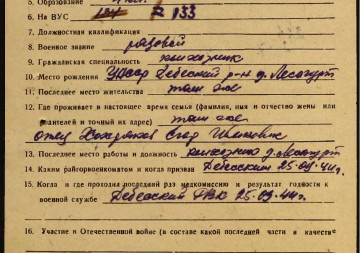 5. Образование
6. На ВУС № 133
7. Должностная квалификация
8. Военное звание рядовой
9. Гражданская специальность колхозник
10. Место рождения УАССР Дебесский р-н д. Лесагурт
11. Последнее место жительства там же
12. Где проживает в настоящее время семья (фамилия, имя и отчество жены или
родителей и точный их адрес) там же
отец Хохряков Егор Иванович
13. Последнее место работы и должность колхозник д. Лесагурт
14. Каким райгорвоенкоматом и когда призван Дебесским 25.09.44г.
15. Когда и где проходил последний раз медкомиссию и результат годности к
военной службе Дебесский РВК 25.09.44г.
16. Участие в Отечественной войне (в составе какой последней части и качестве